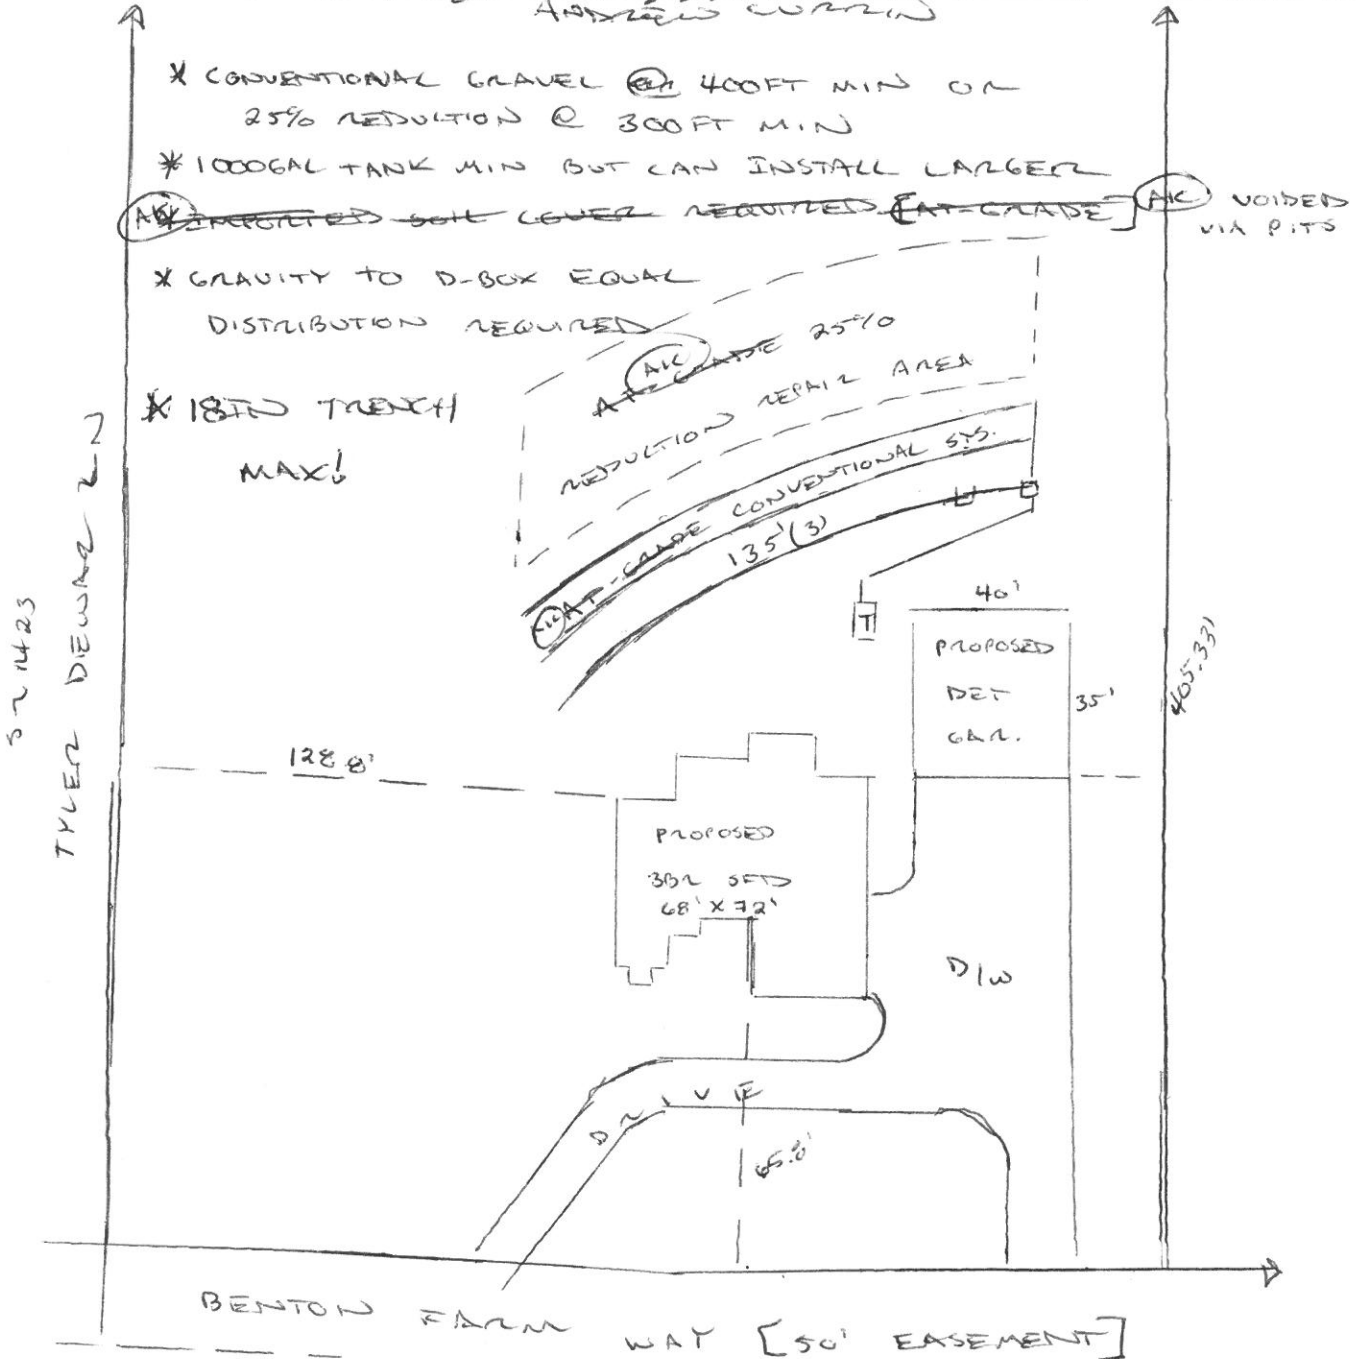 ANDREW CURRIN
* CONVENTIONAL GRAVEL @ 400FT MIN OR
25% REDUCTION @ 300FT MIN
* 1000GAL TANK MIN BUT CAN INSTALL LARGER
AK * IMPORTED SOIL COVER REQUIRED [AT-GRADE] AK VOIDED
VIA PITS
* GRAVITY TO D-BOX EQUAL
DISTRIBUTION REQUIRED
* 18IN TRENCH
MAX!
AK
AT-GRADE 25%
REDUCTION REPAIR AREA
AK AT-GRADE CONVENTIONAL SYS.
135'(3)
T
40'
PROPOSED
DET
GAR.
35'
405.33'
SR 1423
TYLER DEWAR LN
128.8'
PROPOSED
3BR SFD
68' X 72'
D/W
DRIVE
65.8'
BENTON FARM WAY [50' EASEMENT]